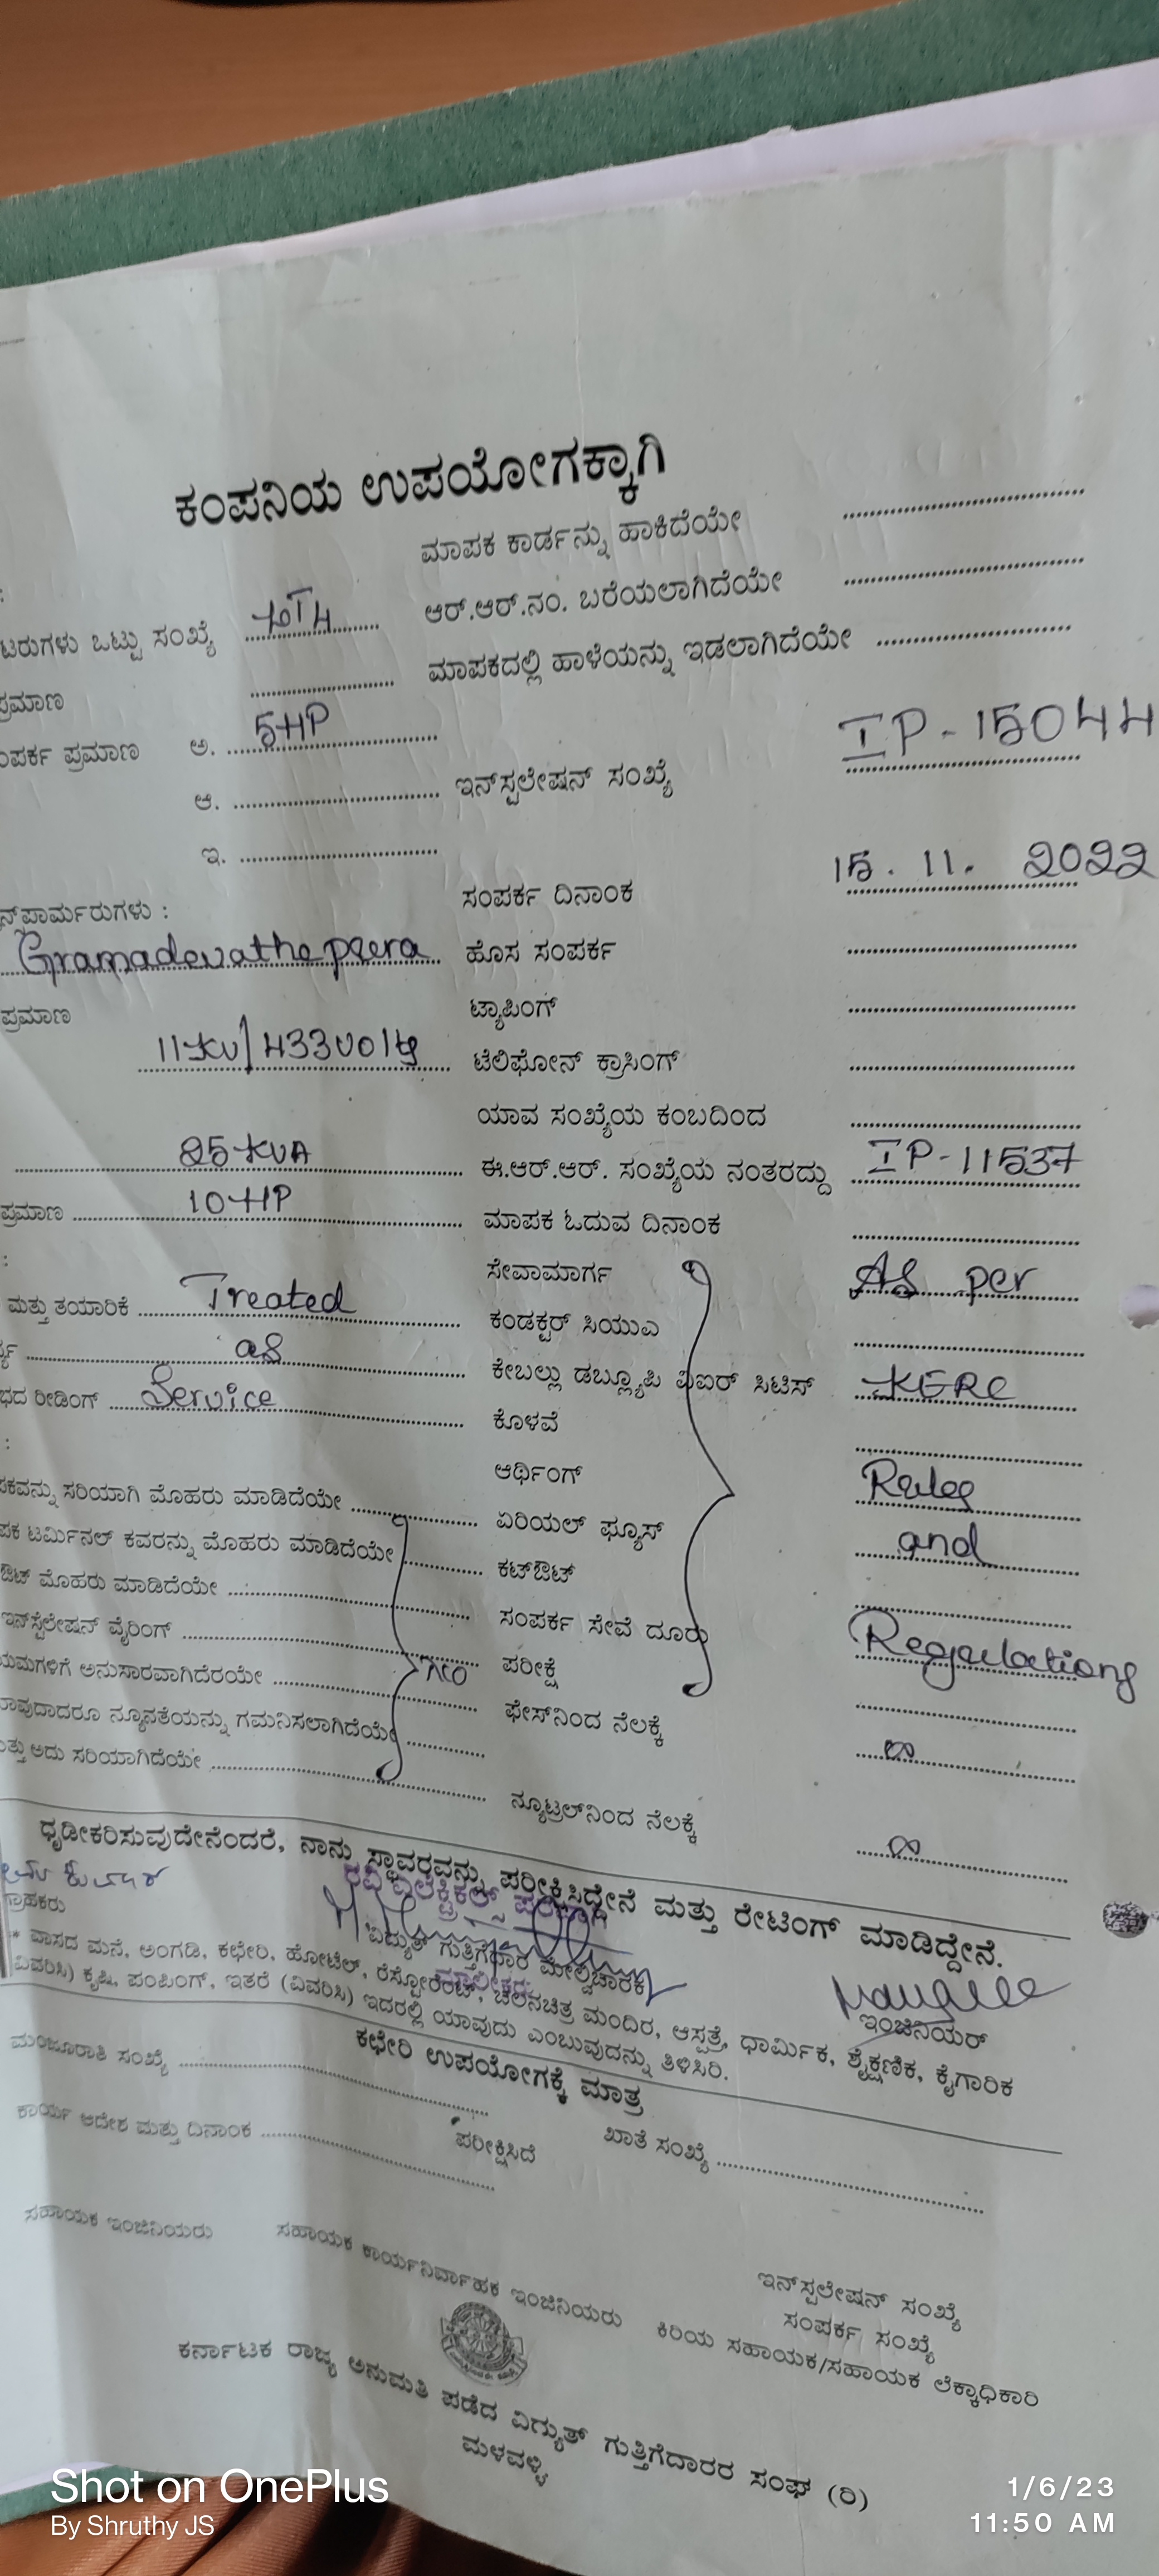 ಕಂಪನಿಯ ಉಪಯೋಗಕ್ಕಾಗಿ
ಮಾಪಕ ಕಾರ್ಡನ್ನು ಹಾಕಿದೆಯೇ
ಟರುಗಳು ಒಟ್ಟು ಸಂಖ್ಯೆ
ಆರ್.ಆರ್.ನಂ. ಬರೆಯಲಾಗಿದೆಯೇ
ಪ್ರಮಾಣ
ಮಾಪಕದಲ್ಲಿ ಹಾಳೆಯನ್ನು ಇಡಲಾಗಿದೆಯೇ
ಪರ್ಕ ಪ್ರಮಾಣ ಅ. 5HP
ಆ. ಇನ್‌ಸ್ಪಲೇಷನ್ ಸಂಖ್ಯೆ IP-15044
ಇ.
ಸಂಪರ್ಕ ದಿನಾಂಕ 15. 11. 2022
ನ್ಸ್‌ಫಾರ್ಮರುಗಳು :
Gramadevathe pura ಹೊಸ ಸಂಪರ್ಕ
ಪ್ರಮಾಣ ಟ್ಯಾಪಿಂಗ್
11KV/433Volts ಟೆಲಿಫೋನ್ ಕ್ರಾಸಿಂಗ್
ಯಾವ ಸಂಖ್ಯೆಯ ಕಂಬದಿಂದ
25 KVA ಈ.ಆರ್.ಆರ್. ಸಂಖ್ಯೆಯ ನಂತರದ್ದು IP-11537
ಪ್ರಮಾಣ 10HP ಮಾಪಕ ಓದುವ ದಿನಾಂಕ
: ಸೇವಾಮಾರ್ಗ As per
ಮತ್ತು ತಯಾರಿಕೆ Treated ಕಂಡಕ್ಟರ್ ಸಿಯುಎ
as ಕೇಬಲ್ಲು ಡಬ್ಲ್ಯೂಪಿ ವಿಐಆರ್ ಸಿಟಿಸ್ KERC
ಭದ ರೀಡಿಂಗ್ Service ಕೊಳವೆ
: ಆರ್ಥಿಂಗ್ Rules
ಪಕವನ್ನು ಸರಿಯಾಗಿ ಮೊಹರು ಮಾಡಿದೆಯೇ ಏರಿಯಲ್ ಫ್ಯೂಸ್
ಪಕ ಟರ್ಮಿನಲ್ ಕವರನ್ನು ಮೊಹರು ಮಾಡಿದೆಯೇ ಕಟ್‌ಔಟ್ and
ಔಟ್ ಮೊಹರು ಮಾಡಿದೆಯೇ ಸಂಪರ್ಕ ಸೇವೆ ದೂರು
ಇನ್‌ಸ್ಟೆಲೇಷನ್ ವೈರಿಂಗ್ ಪರೀಕ್ಷೆ Regulations
ಯಮಗಳಿಗೆ ಅನುಸಾರವಾಗಿದೆರಯೇ ಫೇಸ್‌ನಿಂದ ನೆಲಕ್ಕೆ ∞
ಾವುದಾದರೂ ನ್ಯೂನತೆಯನ್ನು ಗಮನಿಸಲಾಗಿದೆಯೇ
ಮತ್ತು ಅದು ಸರಿಯಾಗಿದೆಯೇ ನ್ಯೂಟ್ರಲ್‌ನಿಂದ ನೆಲಕ್ಕೆ ∞
ಧೃಡೀಕರಿಸುವುದೇನೆಂದರೆ, ನಾನು ಸ್ಥಾವರವನ್ನು ಪರೀಕ್ಷಿಸಿದ್ದೇನೆ ಮತ್ತು ರೇಟಿಂಗ್ ಮಾಡಿದ್ದೇನೆ.
ಗ್ರಾಹಕರು ವಿದ್ಯುತ್ ಗುತ್ತಿಗೆಧಾರ ಮೇಲ್ವಿಚಾರಕ ಇಂಜಿನಿಯರ್
* ವಾಸದ ಮನೆ, ಅಂಗಡಿ, ಕಛೇರಿ, ಹೋಟೆಲ್, ರೆಸ್ಟೋರೆಂಟ್, ಚಲನಚಿತ್ರ ಮಂದಿರ, ಆಸ್ಪತ್ರೆ, ಧಾರ್ಮಿಕ, ಶೈಕ್ಷಣಿಕ, ಕೈಗಾರಿಕ
(ವಿವರಿಸಿ) ಕೃಷಿ, ಪಂಪಿಂಗ್, ಇತರೆ (ವಿವರಿಸಿ) ಇದರಲ್ಲಿ ಯಾವುದು ಎಂಬುವುದನ್ನು ತಿಳಿಸಿರಿ.
ಕಛೇರಿ ಉಪಯೋಗಕ್ಕೆ ಮಾತ್ರ
ಮಂಜೂರಾತಿ ಸಂಖ್ಯೆ ಖಾತೆ ಸಂಖ್ಯೆ
ಕಾರ್ಯ ಆದೇಶ ಮತ್ತು ದಿನಾಂಕ ಪರೀಕ್ಷಿಸಿದೆ
ಇನ್‌ಸ್ಪಲೇಷನ್ ಸಂಖ್ಯೆ
ಸಂಪರ್ಕ ಸಂಖ್ಯೆ
ಸಹಾಯಕ ಇಂಜಿನಿಯರು ಸಹಾಯಕ ಕಾರ್ಯನಿರ್ವಾಹಕ ಇಂಜಿನಿಯರು ಕಿರಿಯ ಸಹಾಯಕ/ಸಹಾಯಕ ಲೆಕ್ಕಾಧಿಕಾರಿ
ಕರ್ನಾಟಕ ರಾಜ್ಯ ಅನುಮತಿ ಪಡೆದ ವಿದ್ಯುತ್ ಗುತ್ತಿಗೆದಾರರ ಸಂಘ (ರಿ)
ಮಳವಳ್ಳಿ
Shot on OnePlus
By Shruthy JS
1/6/23
11:50 AM